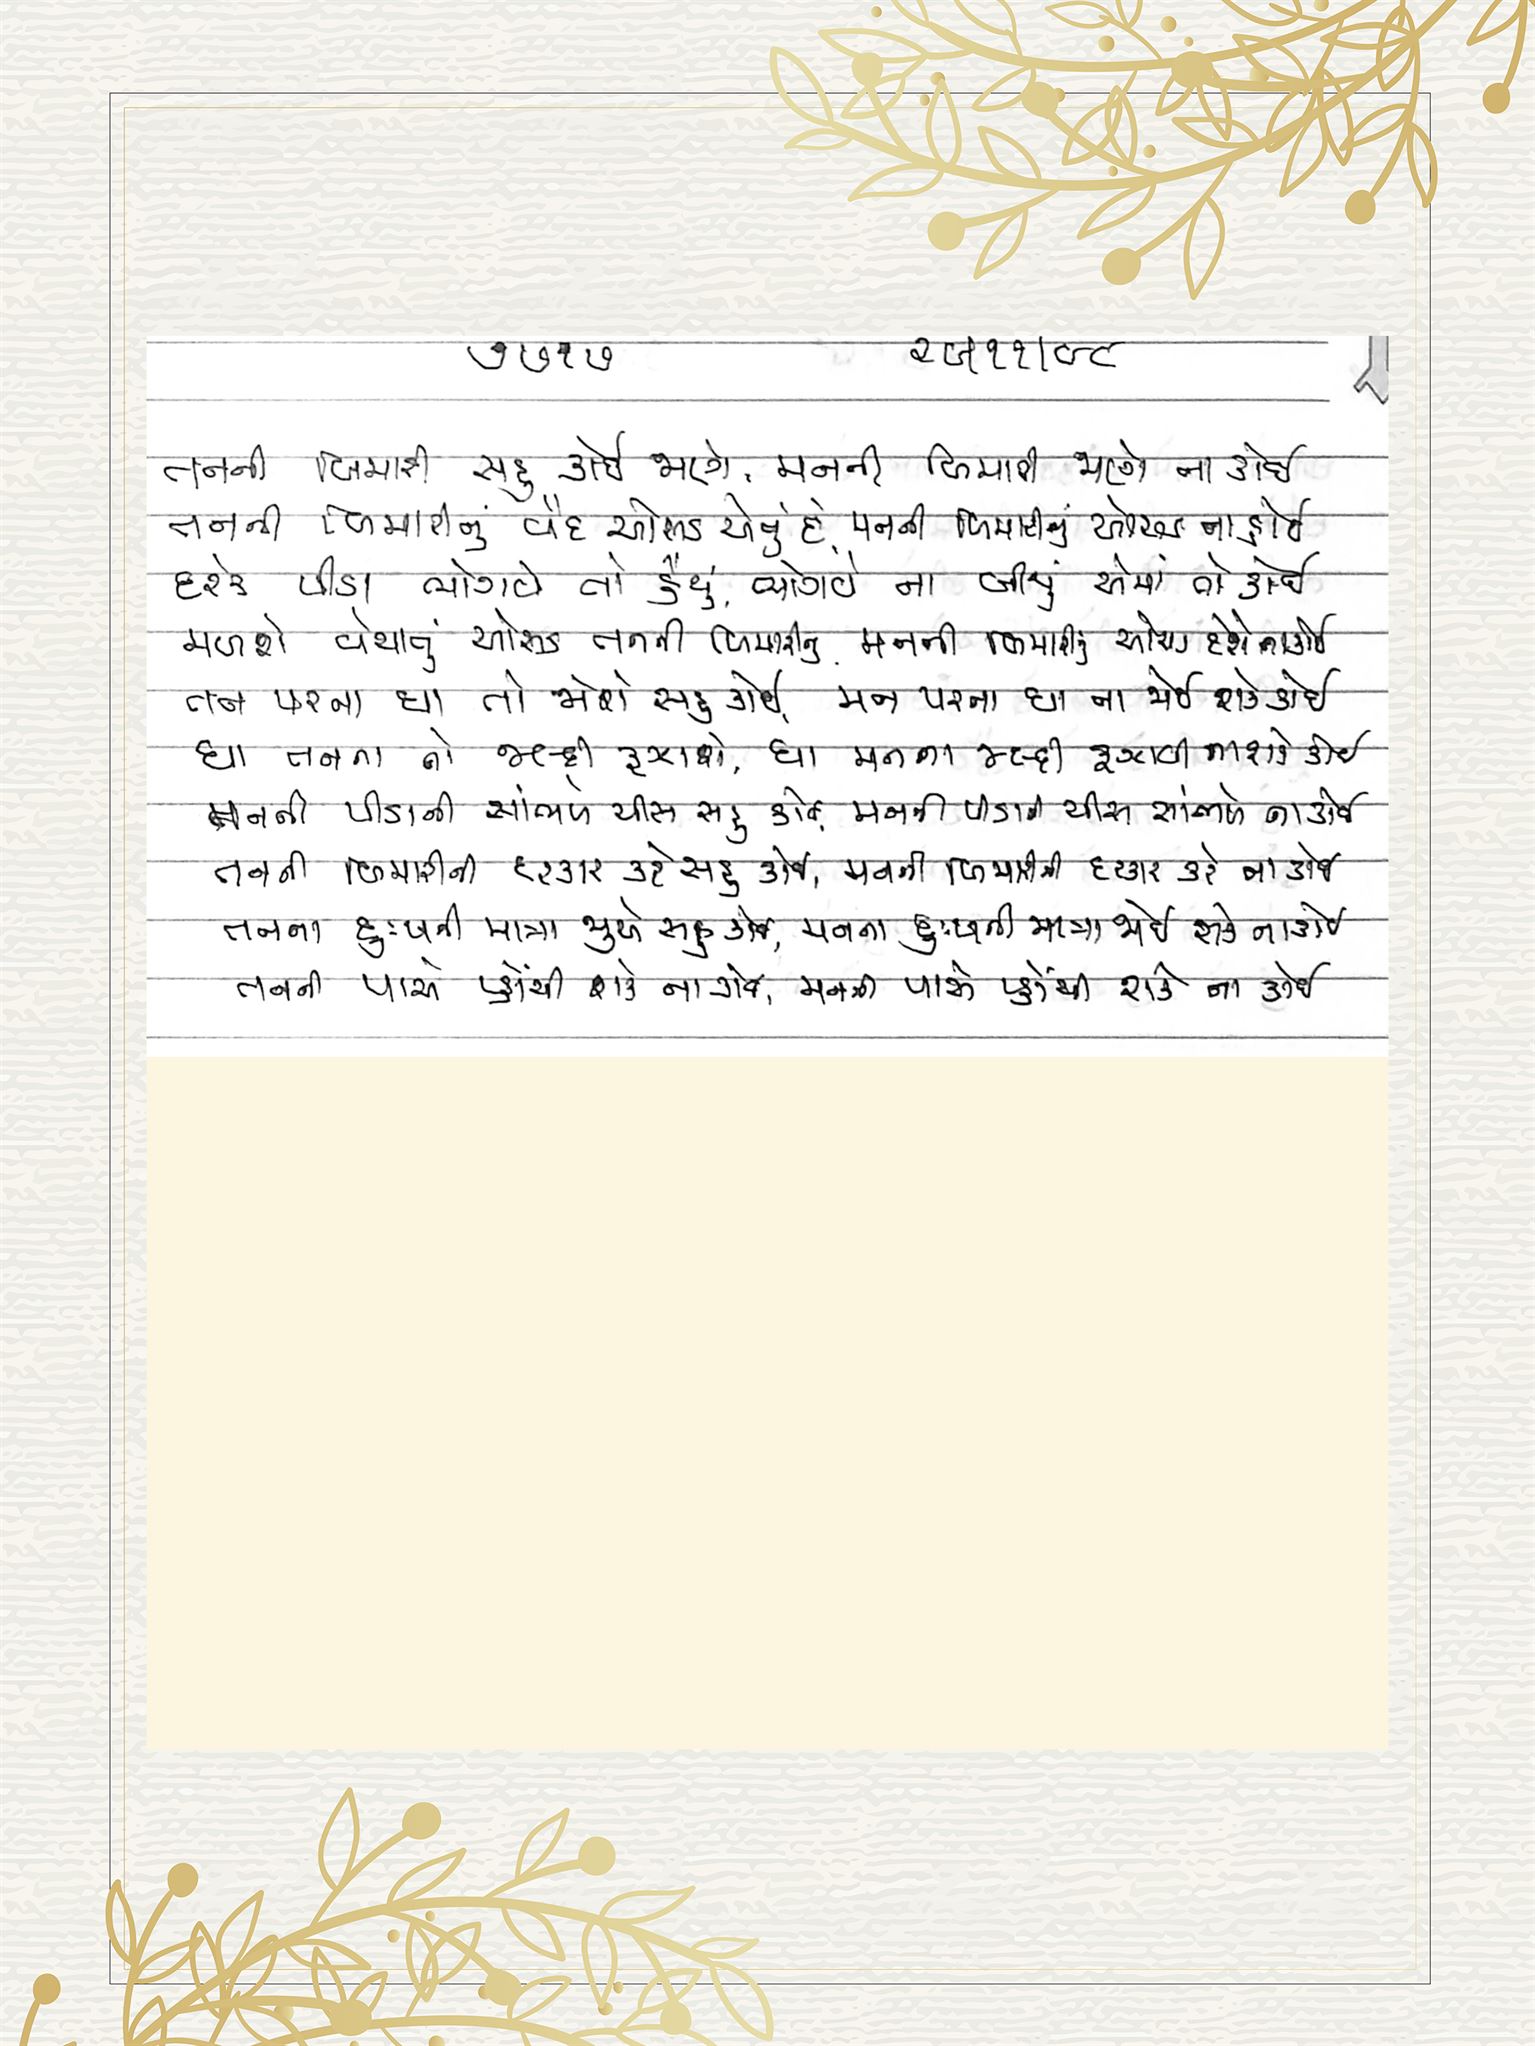 ૭૭૧૭ ૨૯|૧૧|૯૮
તનની બિમારી સહુ કોઈ જાણે, મનની બિમારી જાણે ના કોઈ
તનની બિમારીનું વૈદ ઓસડ એનું દે, મનની બિમારીનું ઓસડ ના કોઈ
દરેક પીડા ભોગવે તો હૈયું, ભોગવે ના બીજું એમાં તો કોઈ
મળશે વેચાતું ઓસડ તનની બિમારીનું મનની બિમારીનું ઓસડ દેશે ના કોઈ
તન પરના ઘા તો જોશે સહુ કોઈ, મન પરના ઘા ના જોઈ શકે કોઈ
ઘા તનના તો જલ્દી રૂઝાશે, ઘા મનના જલ્દી રૂઝાવી ના શકે કોઈ
તનની પીડાની સાંભળે ચીસ સહુ કોઈ, મનની પીડાની ચીસ સાંભળે ના કોઈ
તનની બિમારીની દરકાર કરે સહુ કોઈ, મનની બિમારીની દરકાર કરે ના કોઈ
તનના દુઃખની માત્રા જુએ સહુ કોઈ, મનના દુઃખની માત્રા જોઈ શકે ના કોઈ
તનની પાસે પહોંચી શકે ના કોઈ, મનની પાસે પહોંચી શકે ના કોઈ